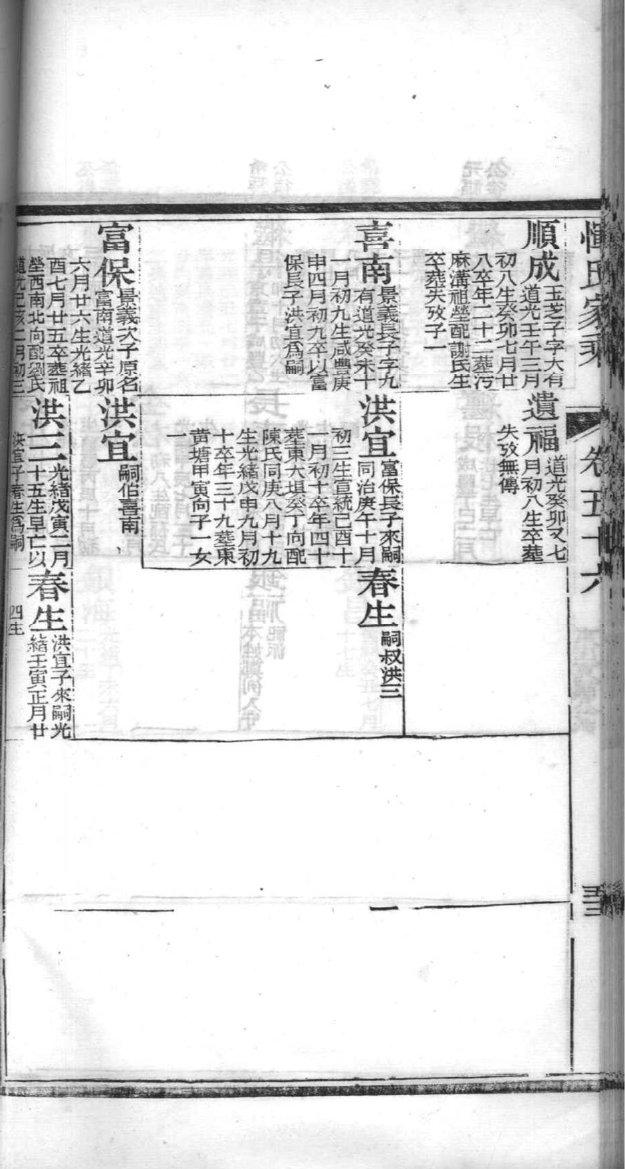 惲氏家乘
卷五十六
順成
玉芝子字大有
道光壬午三月
初八生癸卯七月廿
八卒年二十二葬汚
麻溝祖塋配謝氏生
卒葬失攷子一
遺福
道光癸卯又七
月初八生卒葬
失攷無傳
喜南
景義長子字九
有道光癸未十
一月初九生咸豐庚
申四月初九卒以富
保長子洪宜爲嗣
洪宜
富保長子來嗣
同治庚午十月
初三生宣統己酉十
二月初十卒年四十
葬東大垻癸丁向配
陳氏同庚八月十九
生光緒戊申九月初
十卒年三十九葬東
黃塘甲寅向子一女
一
春生
嗣叔洪三
富保
景義次子原名
富南道光辛卯
六月廿六生光緒乙
酉七月廿五卒葬祖
塋西南北向配劉氏
道光己亥二月初三
洪宜
嗣伯喜南
洪三
光緒戊寅二月
十五生早亡以
洪宜子春生爲嗣
春生
洪宜子來嗣光
緒壬寅正月廿
四生